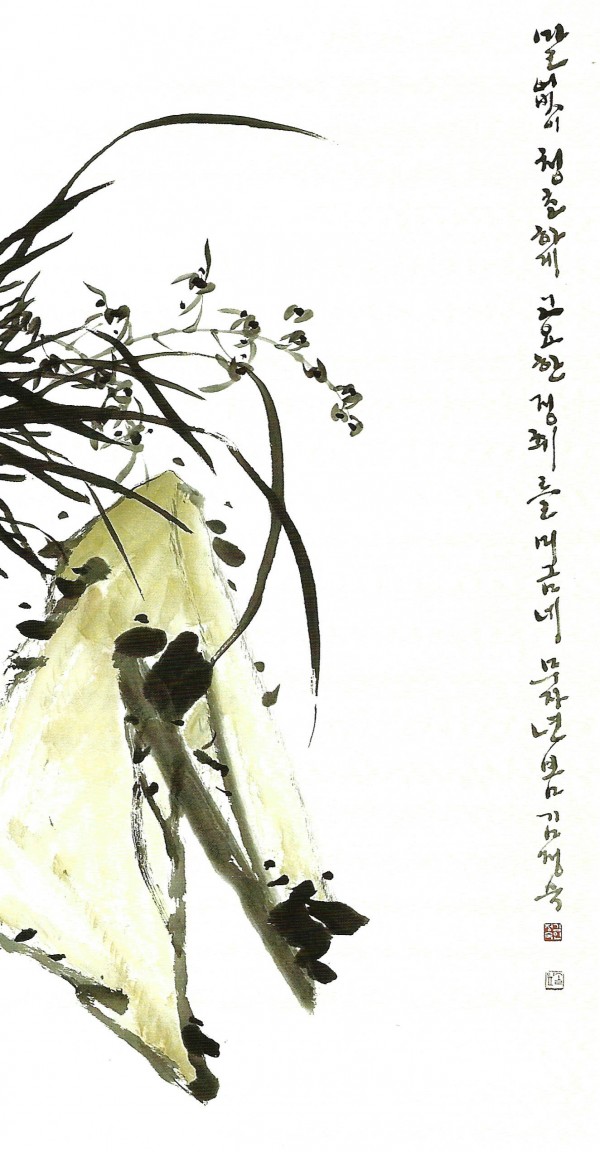 말없이 청초하게 고요한 정취를 머금네 무자년 봄